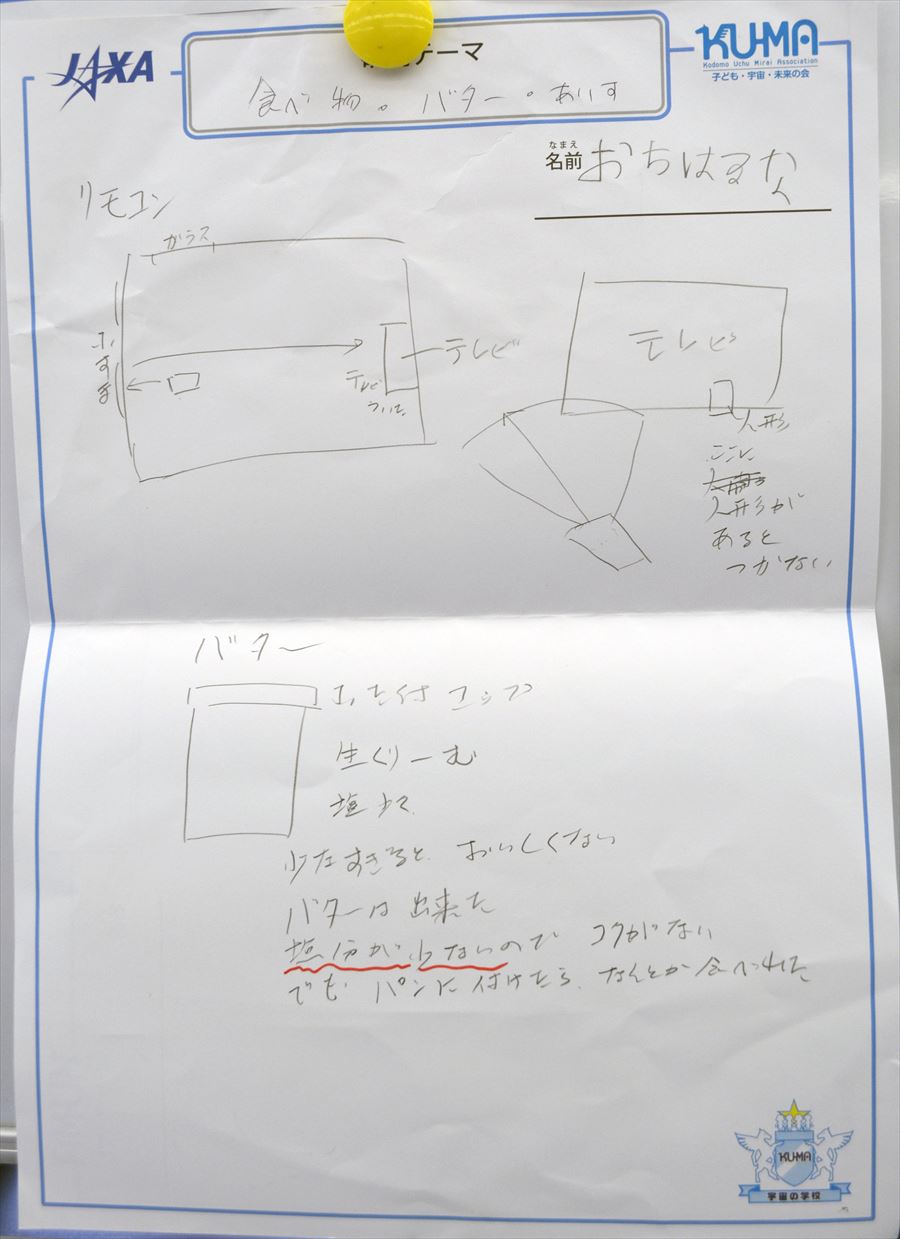 JAXA
テーマ
KU-MA
Kodomo Uchu Mirai Association
子ども・宇宙・未来の会
食べ物。バター。あいす
なまえ
名前 おちはるな
リモコン
ガラス
ふすま
テレビ
テレビ
ついた
テレビ
人形
ここに
人形が
あると
つかない
バター
ふた付コップ
生くりーむ
塩 少々
少なすぎると、おいしくない
バターは出来た
塩分が少ないので コクがない
でも パンに付けたら、なんとか食べれた
KU-MA
宇宙の学校